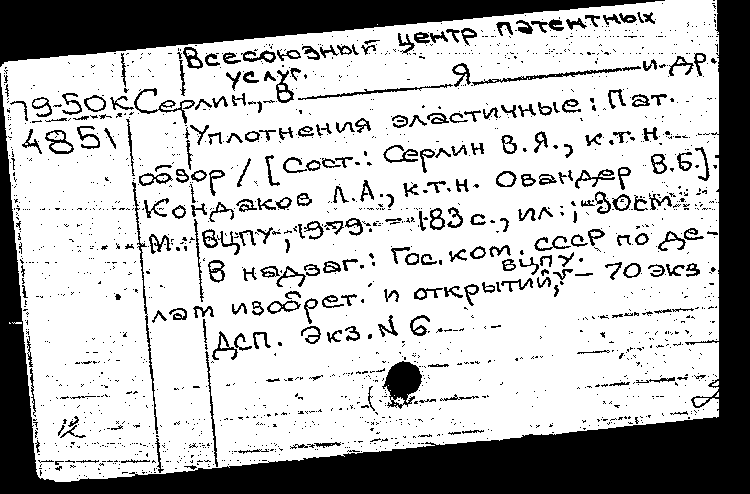 Всесоюзный центр патентных
услуг.
79-50к Серлин, В Я и др.
4851 Уплотнения эластичные: Пат.
обзор / [Сост.: Серлин В.Я., к.т.н.
Кондаков Л.А., к.т.н. Овандер В.Б.].
М.: ВЦПУ, 1979. - 183 с., ил.; 30см
В надзаг.: Гос. ком. СССР по де-
лам изобрет. и открытий, ВЦПУ. - 70 экз.
ДСП. Экз. N 6
12